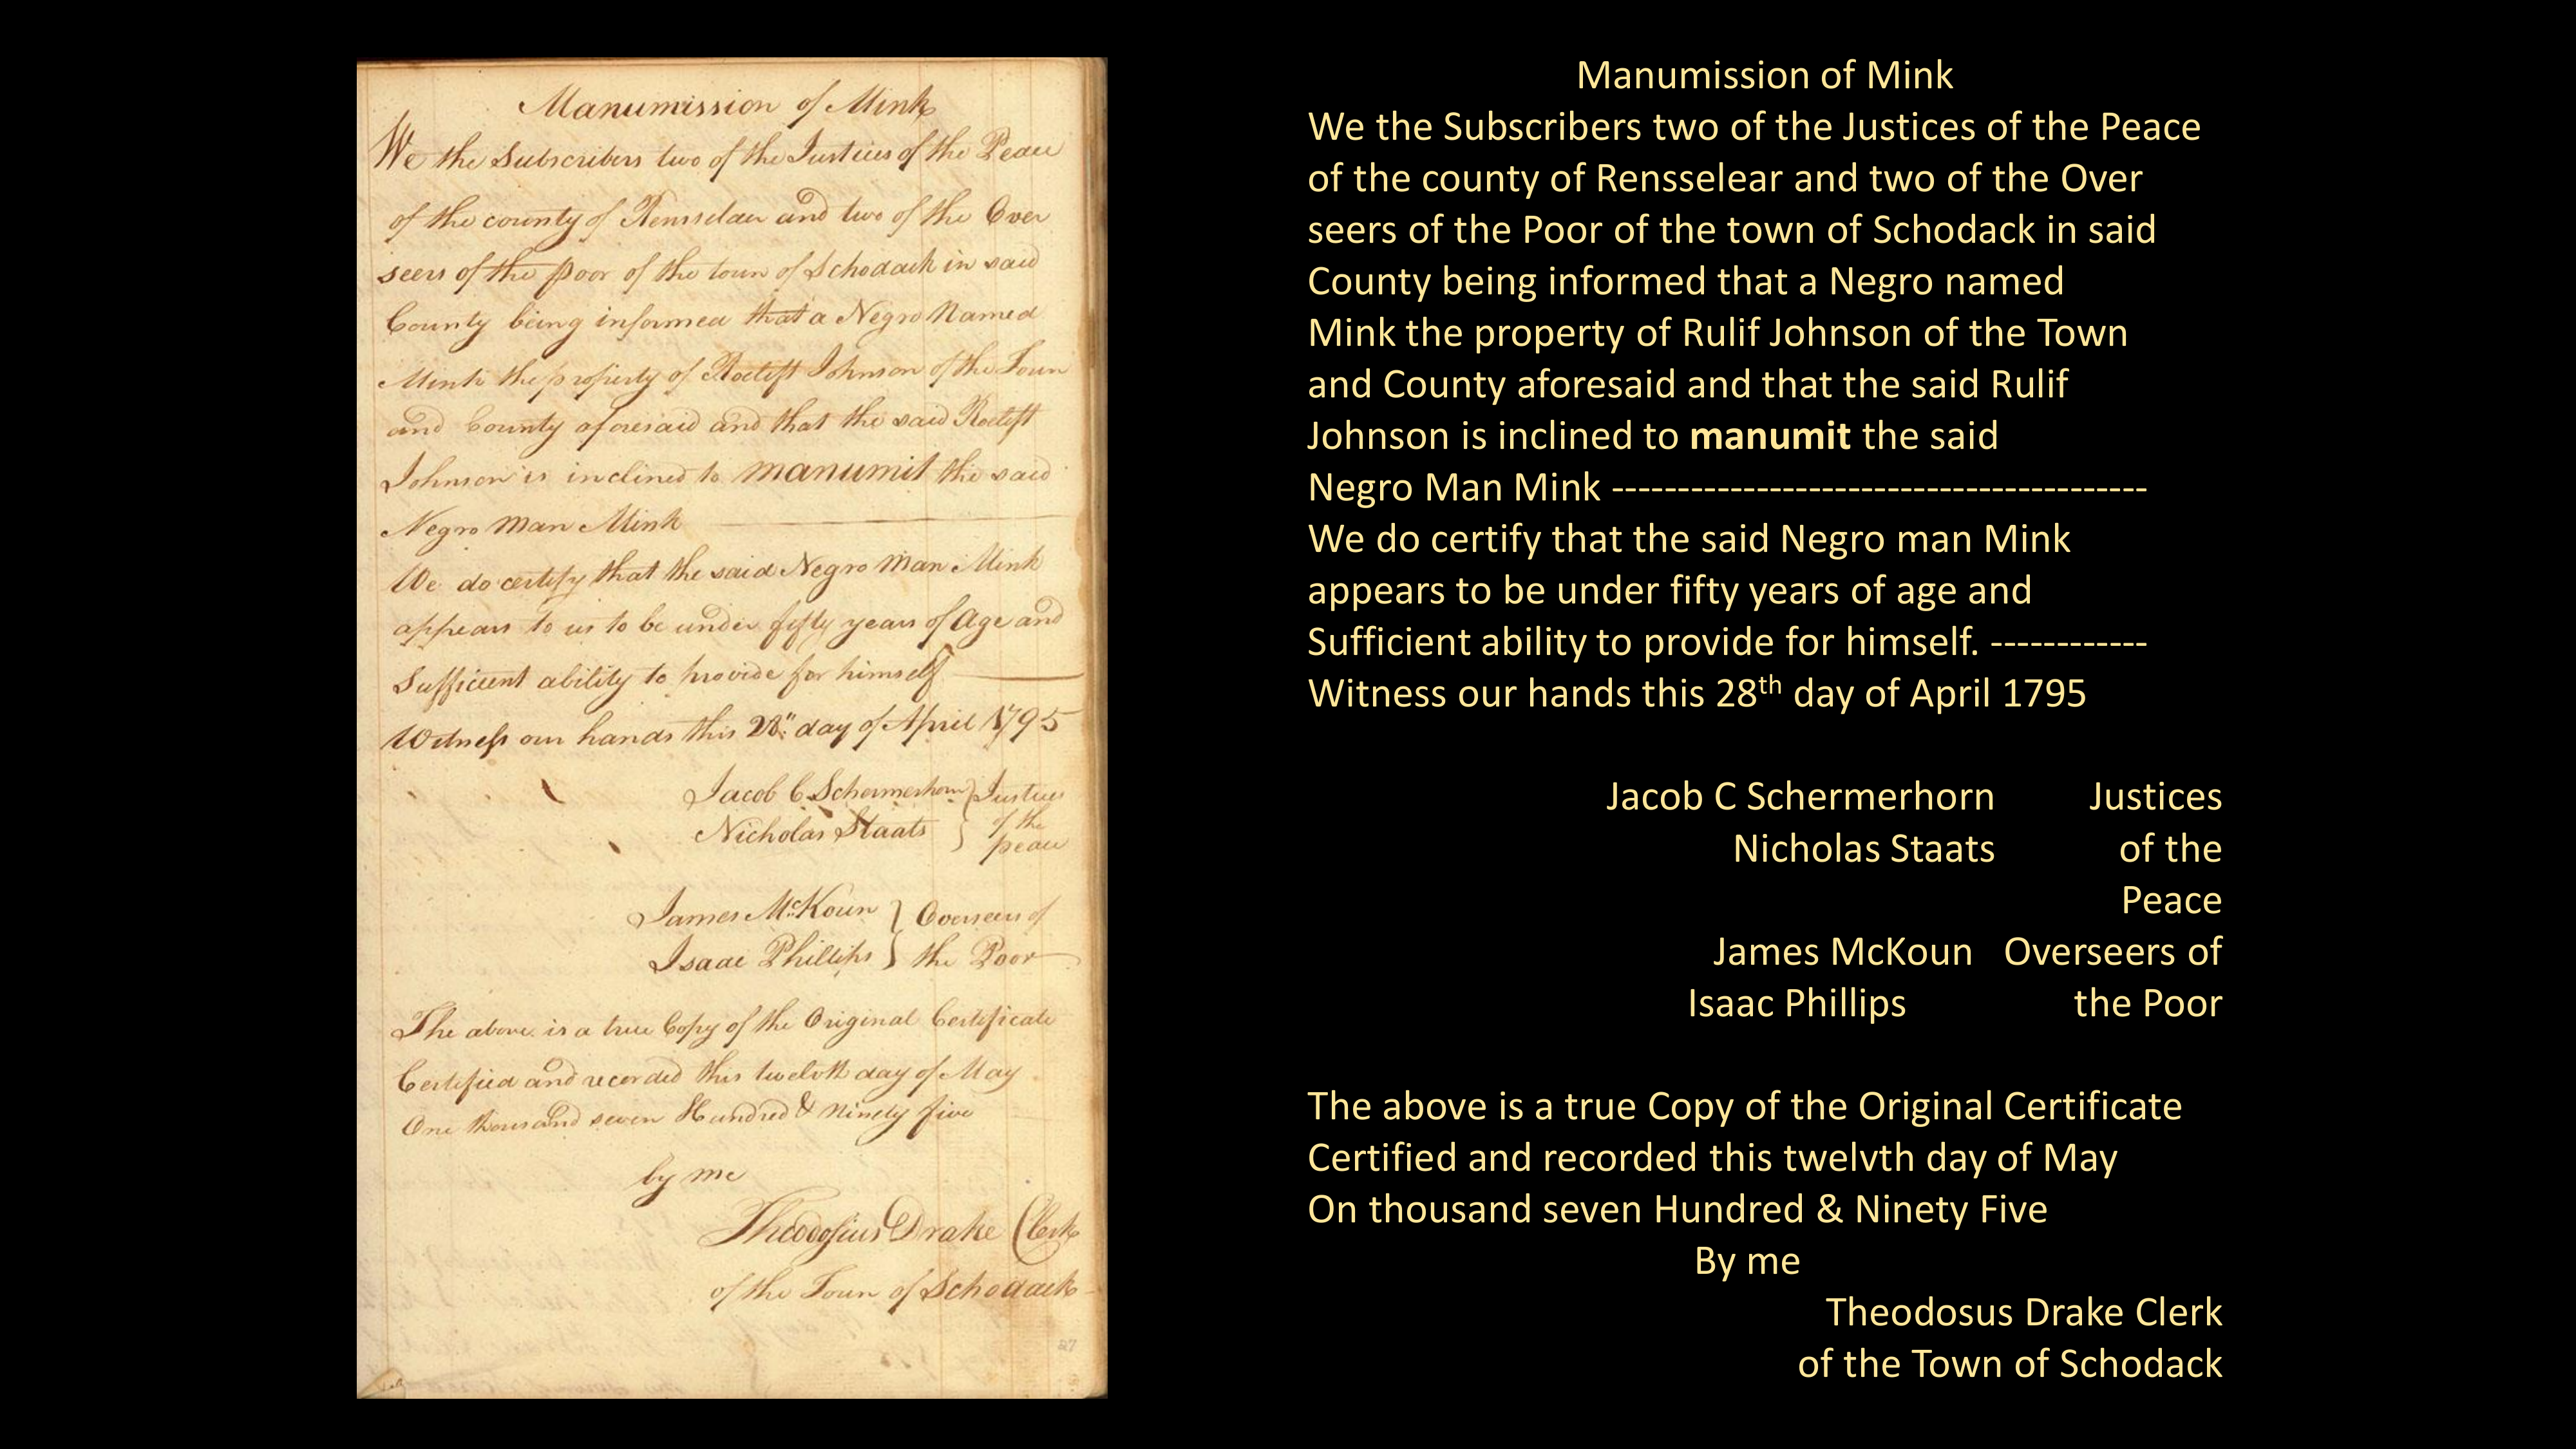 Manumission of Mink
We the Subscribers two of the Justices of the Peace
of the county of Rensselaer and two of the Over
seers of the Poor of the town of Schodack in said
County being informed that a Negro Named
Mink the property of Roeliff Johnson of the Town
and County aforesaid and that the said Roeliff
Johnson is inclined to manumit the said
Negro Man Mink
We do certify that the said Negro Man Mink
appears to us to be under fifty years of Age and
Sufficient ability to provide for himself
Witness our hands this 28th day of April 1795
Jacob C Schermerhorn } Justices
Nicholas Staats } of the
peace
James McKoun } Overseers of
Isaac Phillips } the Poor
The above is a true Copy of the Original Certificate
Certified and recorded this twelvth day of May
One thousand seven Hundred & Ninety five
by me
Theodosius Drake Clerk
of the Town of Schodack
27
Manumission of Mink
We the Subscribers two of the Justices of the Peace
of the county of Rensselear and two of the Over
seers of the Poor of the town of Schodack in said
County being informed that a Negro named
Mink the property of Rulif Johnson of the Town
and County aforesaid and that the said Rulif
Johnson is inclined to manumit the said
Negro Man Mink -----------------------------------------
We do certify that the said Negro man Mink
appears to be under fifty years of age and
Sufficient ability to provide for himself. ------------
Witness our hands this 28th day of April 1795
Jacob C Schermerhorn Justices
Nicholas Staats of the
Peace
James McKoun Overseers of
Isaac Phillips the Poor
The above is a true Copy of the Original Certificate
Certified and recorded this twelvth day of May
On thousand seven Hundred & Ninety Five
By me
Theodosus Drake Clerk
of the Town of Schodack